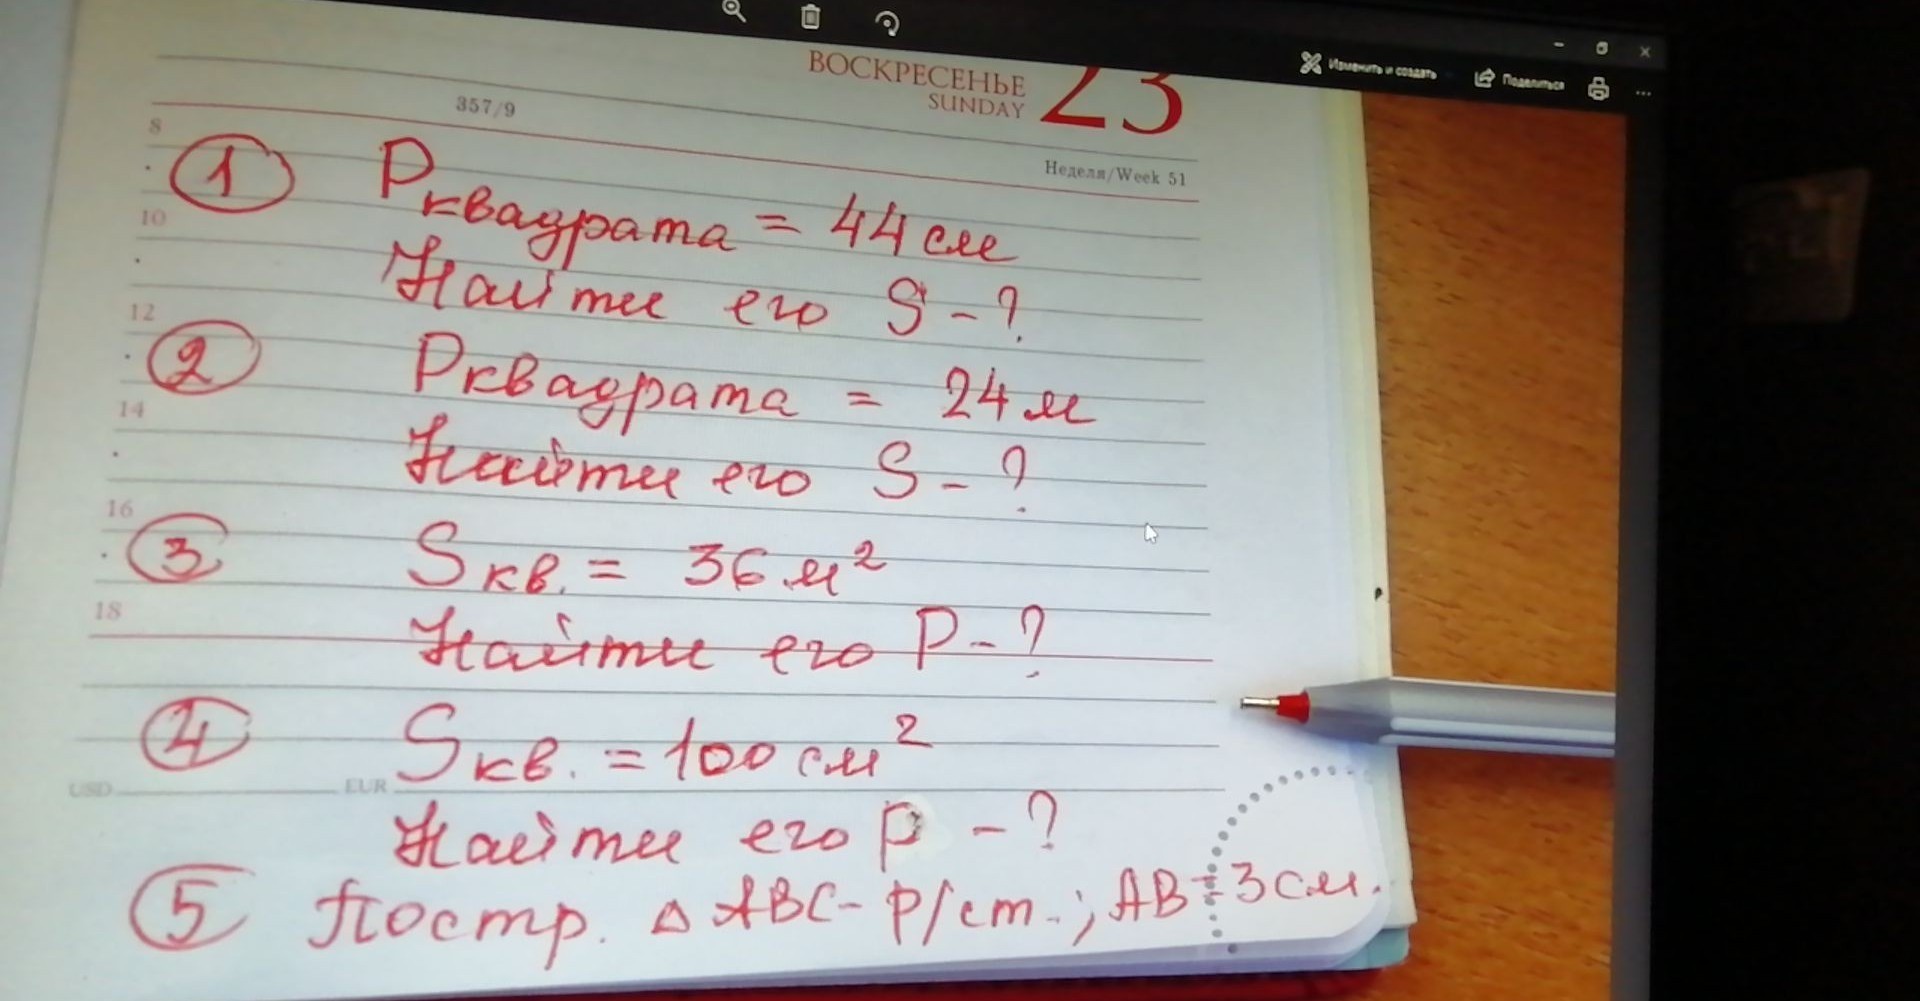 Изменить и создать Поделиться
ВОСКРЕСЕНЬЕ 23
SUNDAY
357/9
Неделя/Week 51
8
1 Pквадрата = 44 см
10
Найти его S - ?
12
2 Pквадрата = 24 м
14
Найти его S - ?
16
3 Sкв. = 36 м²
18
Найти его P - ?
4 Sкв. = 100 см²
USD EUR
Найти его P - ?
5 Постр. △ ABC - р/ст.; AB = 3 см.